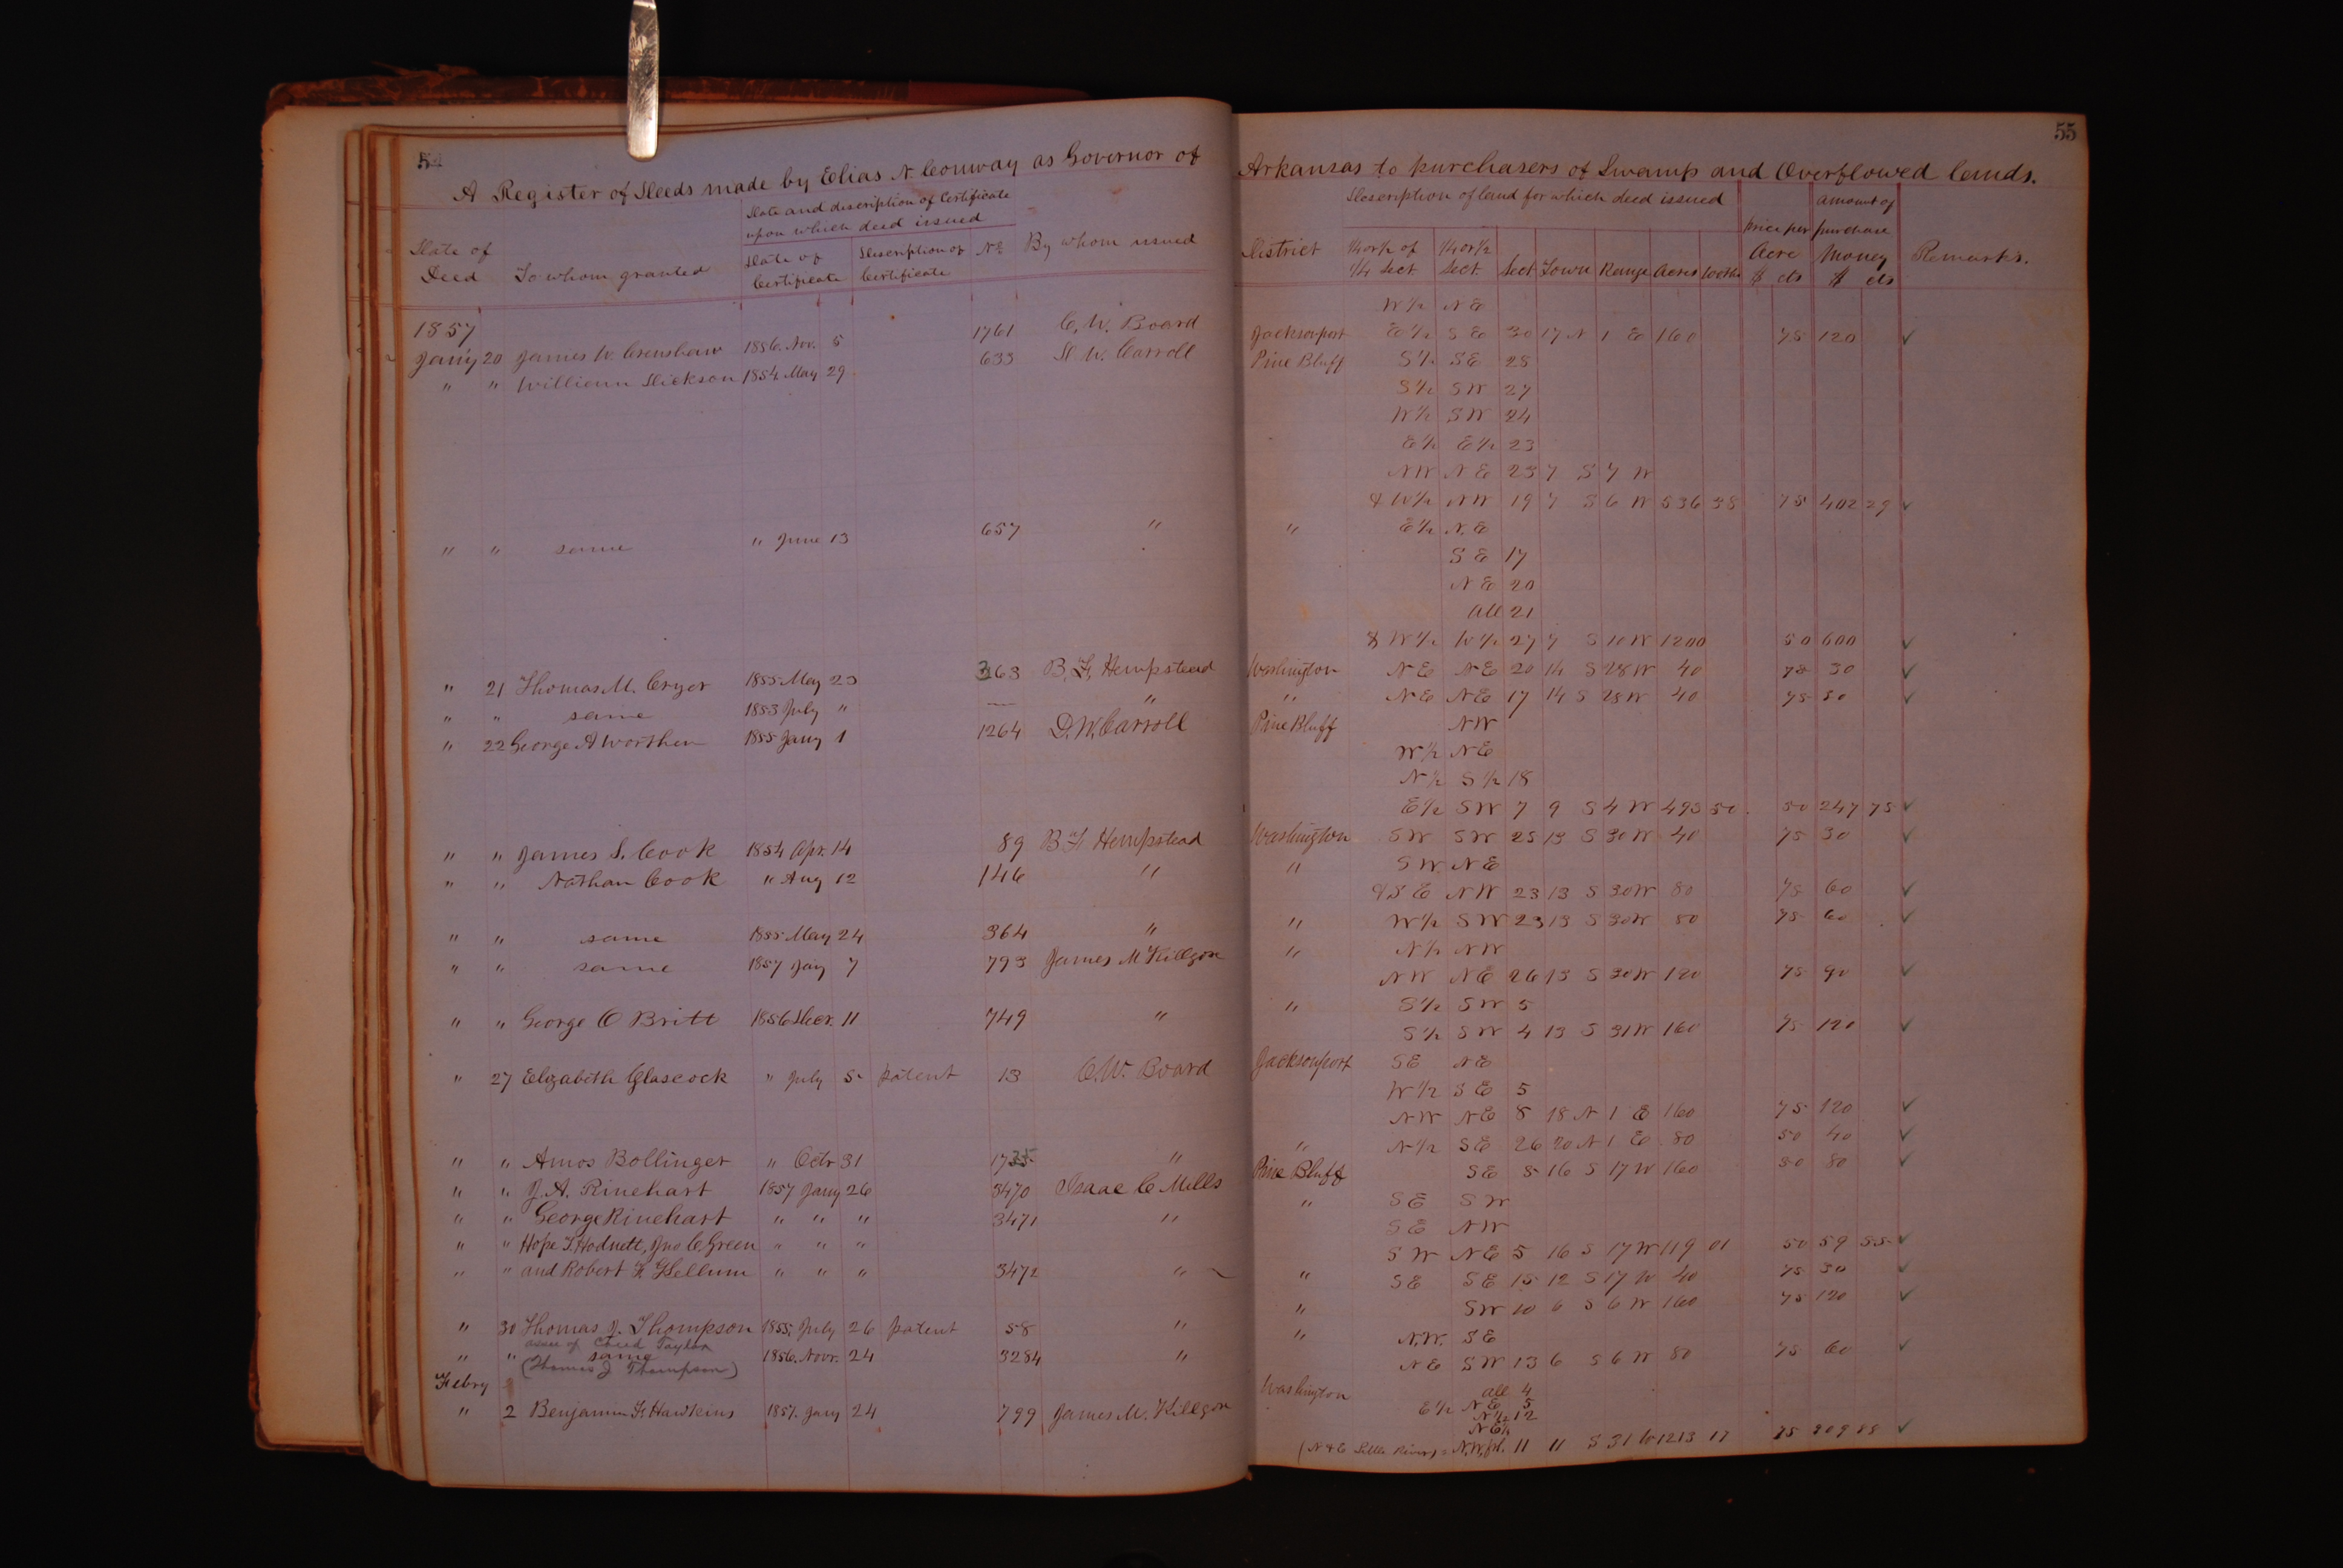 54
A Register of Deeds made by Elias N. Conway as Governor of
Date of Deed
To whom granted
Date and description of Certificate
upon which deed issued
Date of Certificate
Description of Certificate
No
By whom issued
1857
Jan'y 20 James W. Crenshaw 1856. Nov. 5 1761 C. W. Board
" " William Dickson 1854 May 29 633 D. W. Carroll
" " same " June 13 657 "
" 21 Thomas M. Cryer 1855 May 23 363 B. F. Hempstead
" " same 1853 July " — "
" 22 George A Worthen 1855 Jany 1 1264 D. W. Carroll
" " James S. Cook 1854 Apr. 14 89 B F Hempstead
" " Nathan Cook " Aug 12 146 "
" " same 1855 May 24 364 "
" " same 1857 Jany 7 793 James M Killgore
" " George O Britt 1856 Decr. 11 749 "
" 27 Elizabeth Glascock " July 5 patent 13 C. W. Board
" " Amos Bollinger " Octr 31 1735 "
" " J. A. Rinehart 1857 Jany 26 3470 Isaac C Mills
" " George Rinehart " " " 3471 "
" " Hope T. Hodnett, Jno C Green " " "
" " and Robert F Kellum " " " 3472 "
" 30 Thomas J. Thompson 1855. July 26 patent 58 "
assee of Creed Taylor
" " same 1856. Novr. 24 3284 "
(Thomas J Thompson)
Febry
" 2 Benjamin F. Hawkins 1857. Jany 24 799 James M. Killgore
55
Arkansas to purchasers of Swamp and Overflowed lands.
Description of land for which deed issued
District
1/4 or 1/2 of 1/4 Sect
1/4 or 1/2 Sect
Sect
Town
Range
Acres
100ths
price per Acre $ cts
amount of purchase Money $ cts
Remarks.
W 1/2 N E
Jacksonport E 1/2 S E 30 17 N 1 E 160 75 120 ✓
Pine Bluff S 1/2 S E 28
S 1/2 S W 27
W 1/2 S W 24
E 1/2 E 1/2 23
N W N E 23 7 S 7 W
& W 1/2 N W 19 7 S 6 W 536 38 75 402 29 ✓
" E 1/2 N. E
S E 17
N E 20
All 21
& W 1/2 W 1/2 27 7 S 10 W 1200 50 600 ✓
Washington N E N E 20 14 S 28 W 40 75 30 ✓
" N E N E 17 14 S 28 W 40 75 30 ✓
Pine Bluff N W
W 1/2 N E
N 1/2 S 1/2 18
E 1/2 S W 7 9 S 4 W 495 50 50 247 75 ✓
Washington S W S W 25 13 S 30 W 40 75 30 ✓
" S W N E
& S E N W 23 13 S 30 W 80 75 60 ✓
" W 1/2 S W 23 13 S 30 W 80 75 60 ✓
" N 1/2 N W
N W N E 26 13 S 30 W 120 75 90 ✓
" S 1/2 S W 5
S 1/2 S W 4 13 S 31 W 160 75 120 ✓
Jacksonport S E N E
W 1/2 S E 5
N W N E 8 18 N 1 E 160 75 120 ✓
" N 1/2 S E 26 20 N 1 E 80 50 40 ✓
Pine Bluff S E 5 16 S 17 W 160 50 80 ✓
" S E S W
S E N W
S W N E 5 16 S 17 W 119 01 50 59 55 ✓
" S E S E 15 12 S 17 W 40 75 30 ✓
" S W 10 6 S 6 W 160 75 120 ✓
" N. W. S E
N E S W 13 6 S 6 W 80 75 60 ✓
Washington All 4
E 1/2 N E 5
N 1/2 12
N E 1/4
(N & E Little River) = N. W. fl. 11 11 S 31 W 1213 17 75 909 88 ✓